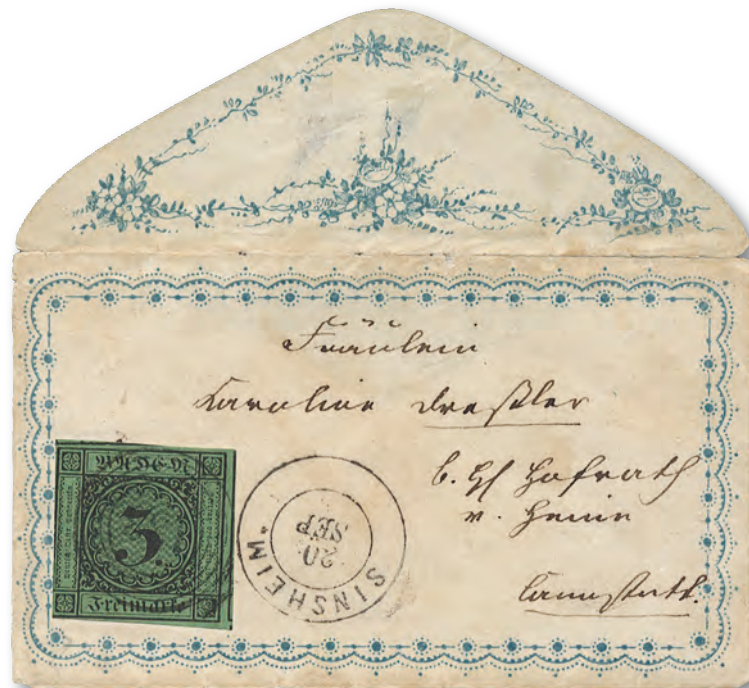 Fräulein
Karoline Dreßler
b. H Hofrath
v. Heine
Cannstatt.
BADEN
3
Freimarke
SINSHEIM
20
SEP